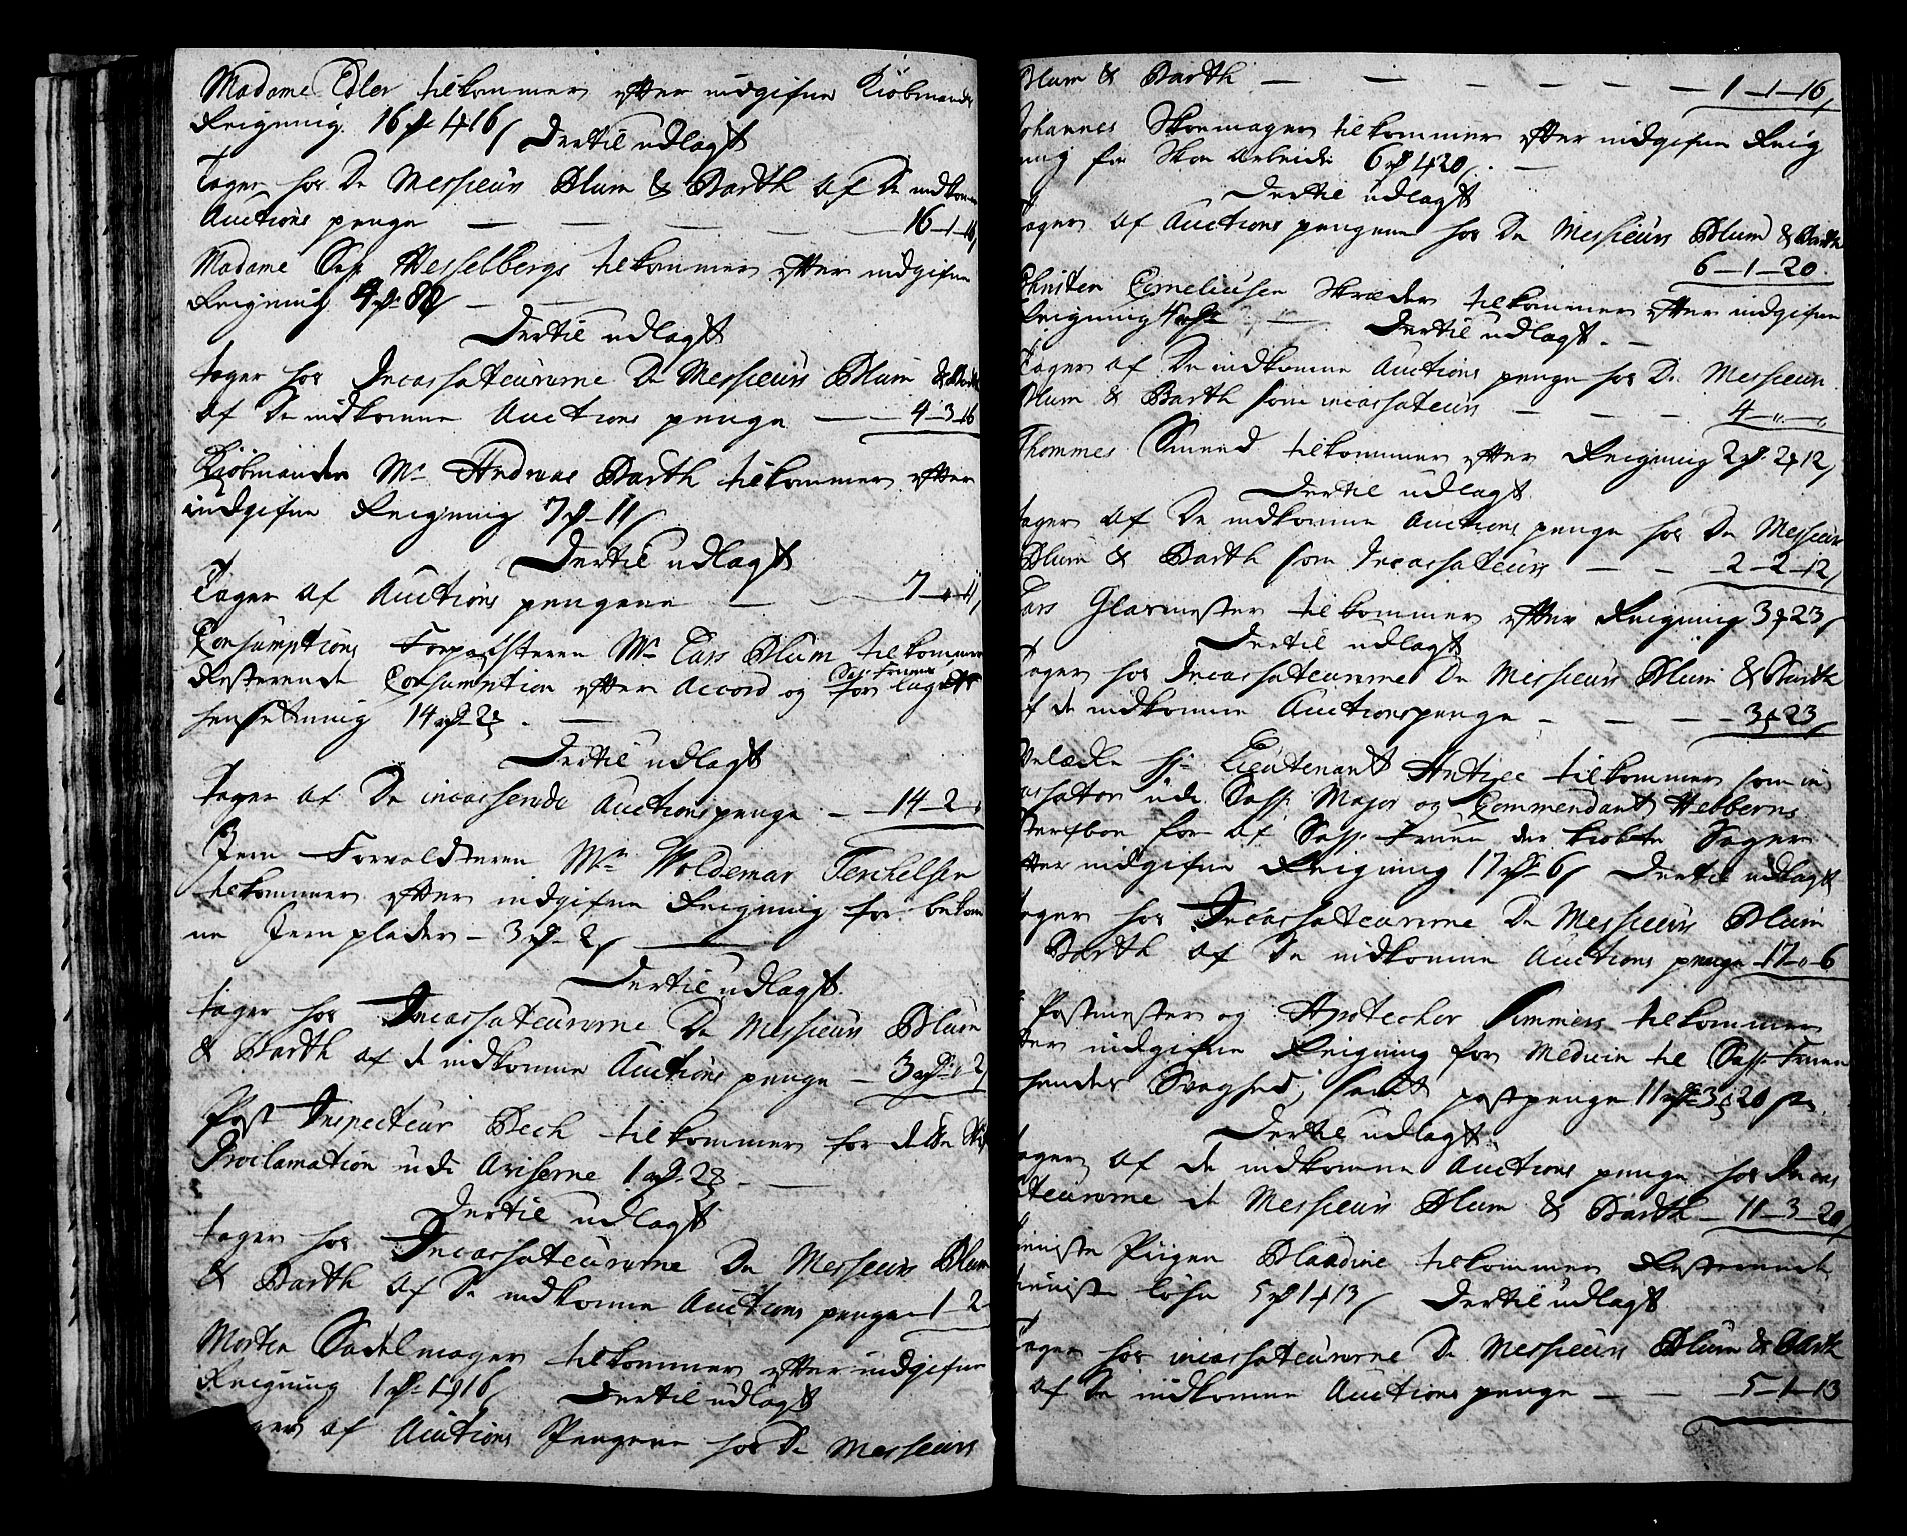 Madame Edler tilkommer efter indgifne Kiøbmands
Reigning 16 rd 1 16 ß Dertil udlagt
tager hos De Messieurs Blum & Barth af De indkomne
Auctions penge — — — — — 16-1-16
Madame Sal. Hesselbergs tilkommer efter indgifne
Reigning — —
Dertil udlagt
tager hos Incassateurerne De Messieurs Blum & Barth
af De indkomne Auctions penge — 4-3-16
Kiøbmanden Mr Andreas Barth tilkommer efter
indgifne Reigning 7 rd - 11 ß
Dertil udlagt
Tager af Auctions pengene — 7-"-11
Consumptions Forpagteren Mr Lars Blum tilkommer
Resterende Consumption efter Accord og Sal. Fruens
14 rd 2 . —
Dertil udlagt
Tager af De incasserede Auctionspenge — 14-2-"
Jern Forvalteren Mr Woldemar Terchelsen
tilkommer efter indgifne Reigning for bekom
ne Jern plader - 3 rd - 2 ß —
Dertil udlagt
tager hos Incassateurerne De Messieurs Blum
& Barth af de indkomne Auctions penge — 3 rd " 2
Post Inspecteur Bech tilkommer for dette
Proclamation udi Aviserne 1 rd 2 . —
Dertil udlagt
tager hos Incassateurerne De Messieurs Blum
& Barth af De indkomne Auctions penge 1-2
Morten Sadelmager tilkommer efter indgifne
Reigning 1 rd 1 16 ß Dertil udlagt
ger af Auctions Pengene hos De Messieurs
Blum & Barth — — — — — 1-1-16
Johannes Skoemager tilkommer efter indgifne Reig
ning for Skoe Arbeide 6 rd 1 20 ß. —
Dertil udlagt
tager af Auctions pengene hos De Messieurs Blum & Barth
6-1-20.
Christen Corneliusen Skræder tilkommer efter indgifne
Reigning 4 rd — Dertil udlagt. —
Tager af De indkomne Auctions penge hos De Messieurs
Blum & Barth som incassateurs — — — 4-"-"
Thommes Smed tilkommer efter Reigning 2 rd 2 12 ß
Dertil udlagt
tager af De indkomne Auctions penge hos De Messieurs
Blum & Barth som Incassateurs — — 2-2-12
Lars Glarmester tilkommer efter Reigning 3 23 ß
Dertil udlagt
tager hos Incassateurerne De Messieurs Blum & Barth
af de indkomne Auctionspenge — — — 3 23 ß
Hr Lieutenant tilkommer som in
cassator udi Sal. Major og Commendant Helberns
Sterfboe for af Sal. Fruen der kiøbte Sager
efter indgifne Reigning 17 rd 6 ß Dertil udlagt
tager hos Incassateurerne De Messieurs Blum
Barth af De indkomne Auctions penge - 17-"-6
Postmester og Apothecker tilkommer
efter indgifne Reigning for Medicin til Sal. Fruen
hendes Svaghed, samt postpenge 11 rd 3 20 ß
Dertil udlagt
tager af de indkomne Auctions penge hos Incas
sateurerne de Messieurs Blum & Barth — 11-3-20
Tieniste Piigen Blandine tilkommer Resterende
tieniste løhn 5 rd 1 13 ß Dertil udlagt
Tager hos incassateurerne De Messieurs Blum & Barth
af De indkomne Auctions penge — — 5-1-13